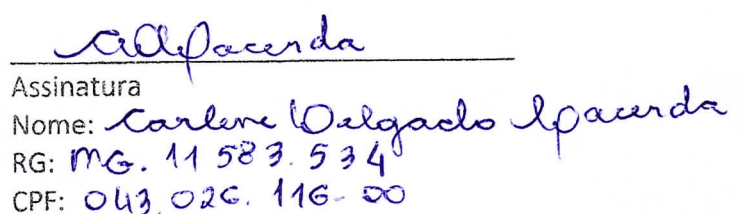 CDLacerda
Assinatura
Nome: Carlene Delgado Lacerda
RG: MG. 11 583. 534
CPF: 043.026.116-00